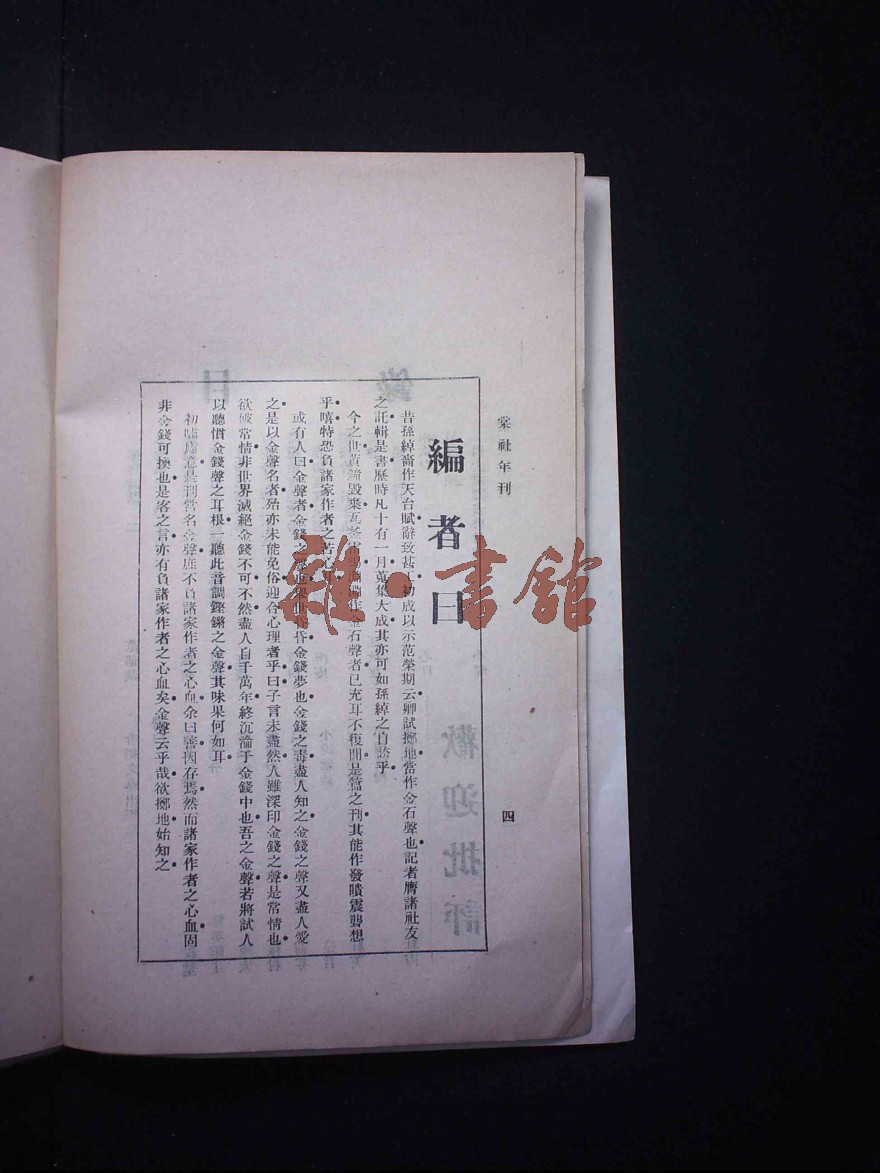 棠社年刊
四
編者曰
昔孫綽嘗作天台賦辭致甚工初成以示范榮期云卿試擲地當作金石聲也記者膺諸社友
之託輯是書歷時凡十有一月蒐集大成其亦可如孫綽之自詡乎
今之世黃鐘毀棄瓦釜雷鳴 作金石聲者已充耳不復聞是篇之刊其能作發聵震聾想
乎嘻特恐負諸家作者之苦心耳
或有人曰金聲者金錢之聲也舉世昏昏金錢夢也金錢之毒盡人知之金錢之聲又盡人愛
之是以金聲名者殆亦未能免俗迎合心理者乎曰子言未盡然人雖深印金錢之聲是常情也
欲破常情非世界滅絕金錢不可不然盡人自千萬年終沉淪于金錢中也吾之金聲若將試人
以聽慣金錢聲之耳根一聽此音調鏗鏘之金聲其味果何如耳
初嘯 意是刊當名金聲庶不負諸家作者之心血余曰善因存焉然而諸家作者之心血固
非金錢可換也是客之言亦有負諸家作者之心血矣金聲云乎哉欲擲地始知之
雜·書館